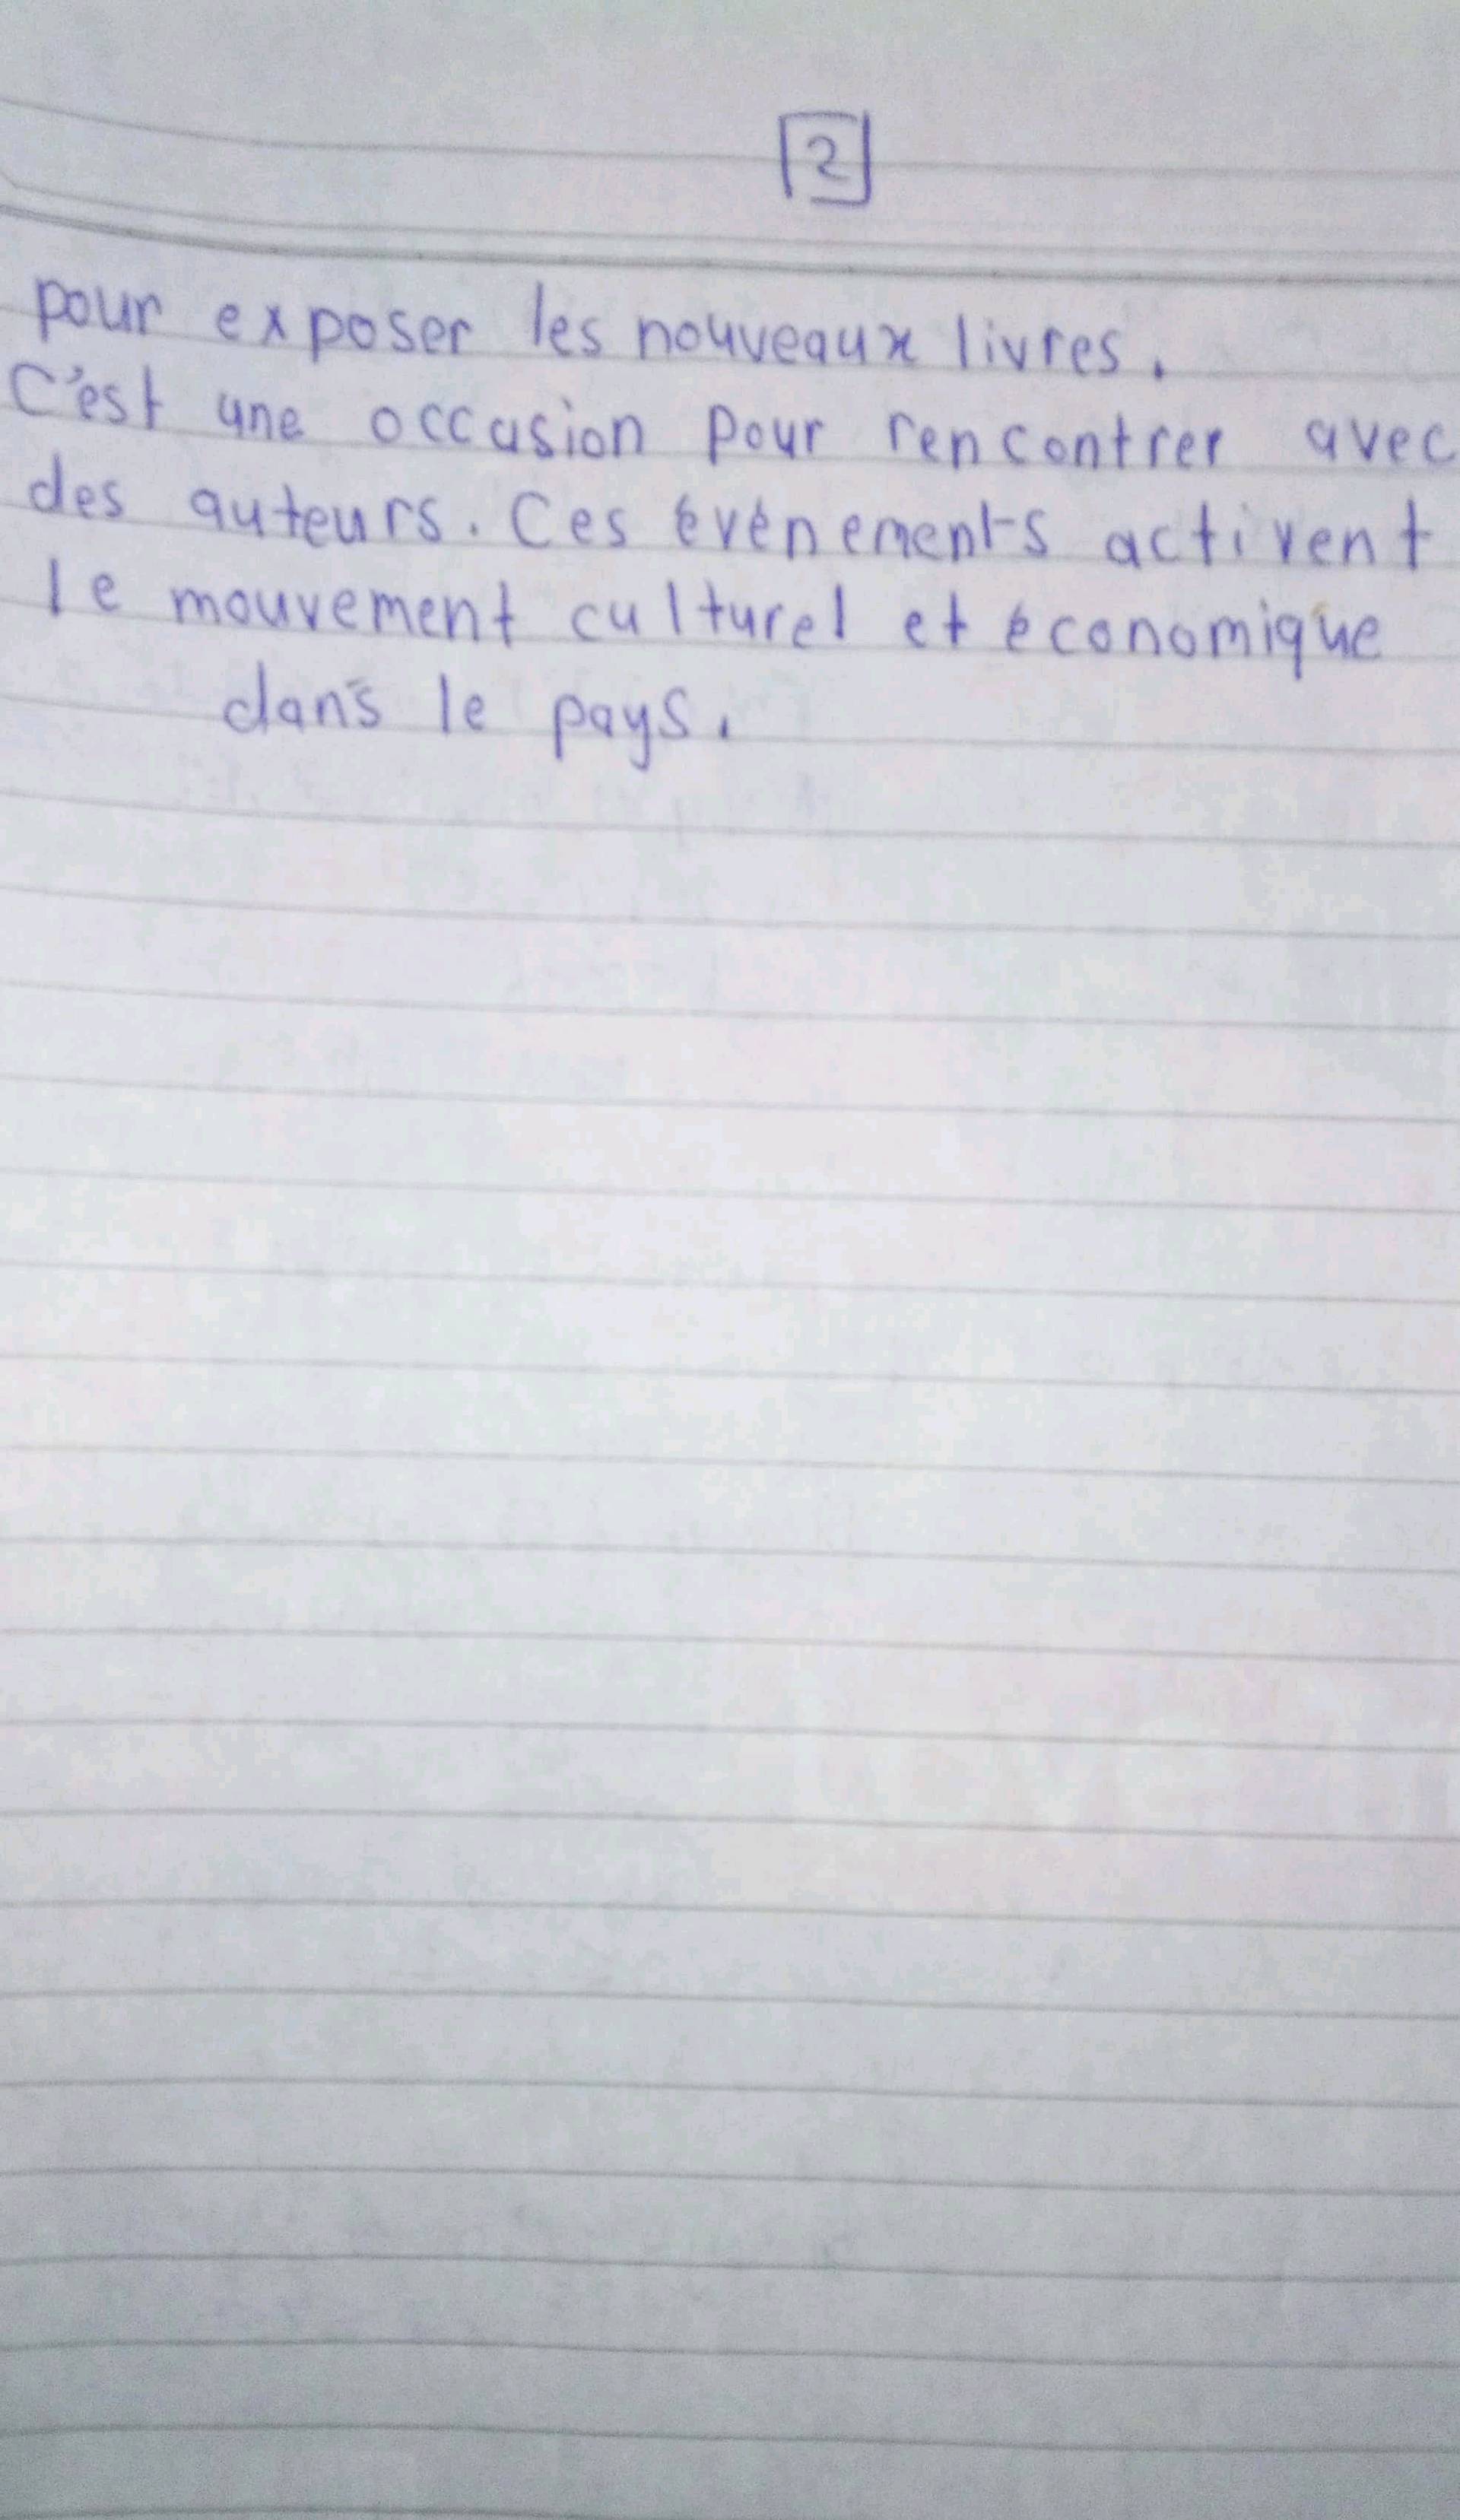 2
pour exposer les nouveaux livres.
C'est une occasion pour rencontrer avec
des auteurs. Ces événements activent
le mouvement culturel et économique
dans le pays.